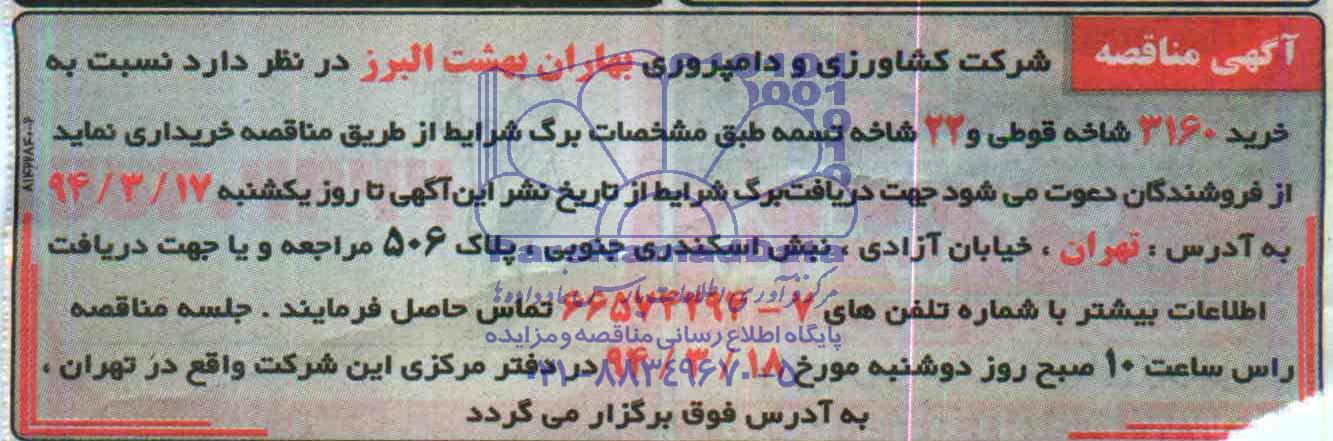 آگهی مناقصه
شرکت کشاورزی و دامپروری بهاران بهشت البرز در نظر دارد نسبت به
خرید ۳۱۶۰ شاخه قوطی و ۲۲ شاخه تسمه طبق مشخصات برگ شرایط از طریق مناقصه خریداری نماید
از فروشندگان دعوت می شود جهت دریافت برگ شرایط از تاریخ نشر این آگهی تا روز یکشنبه ۹۴/۳/۱۷
به آدرس : تهران ، خیابان آزادی ، نبش اسکندری جنوبی ، پلاک ۵۰۶ مراجعه و یا جهت دریافت
اطلاعات بیشتر با شماره تلفن های تماس حاصل فرمایند . جلسه مناقصه
راس ساعت ۱۰ صبح روز دوشنبه مورخ ۹۴/۳/۱۸ در دفتر مرکزی این شرکت واقع در تهران ،
به آدرس فوق برگزار می گردد
پایگاه اطلاع رسانی مناقصه و مزایده
۰۲۱-۸۸۳۴۹۶۷۰-۵